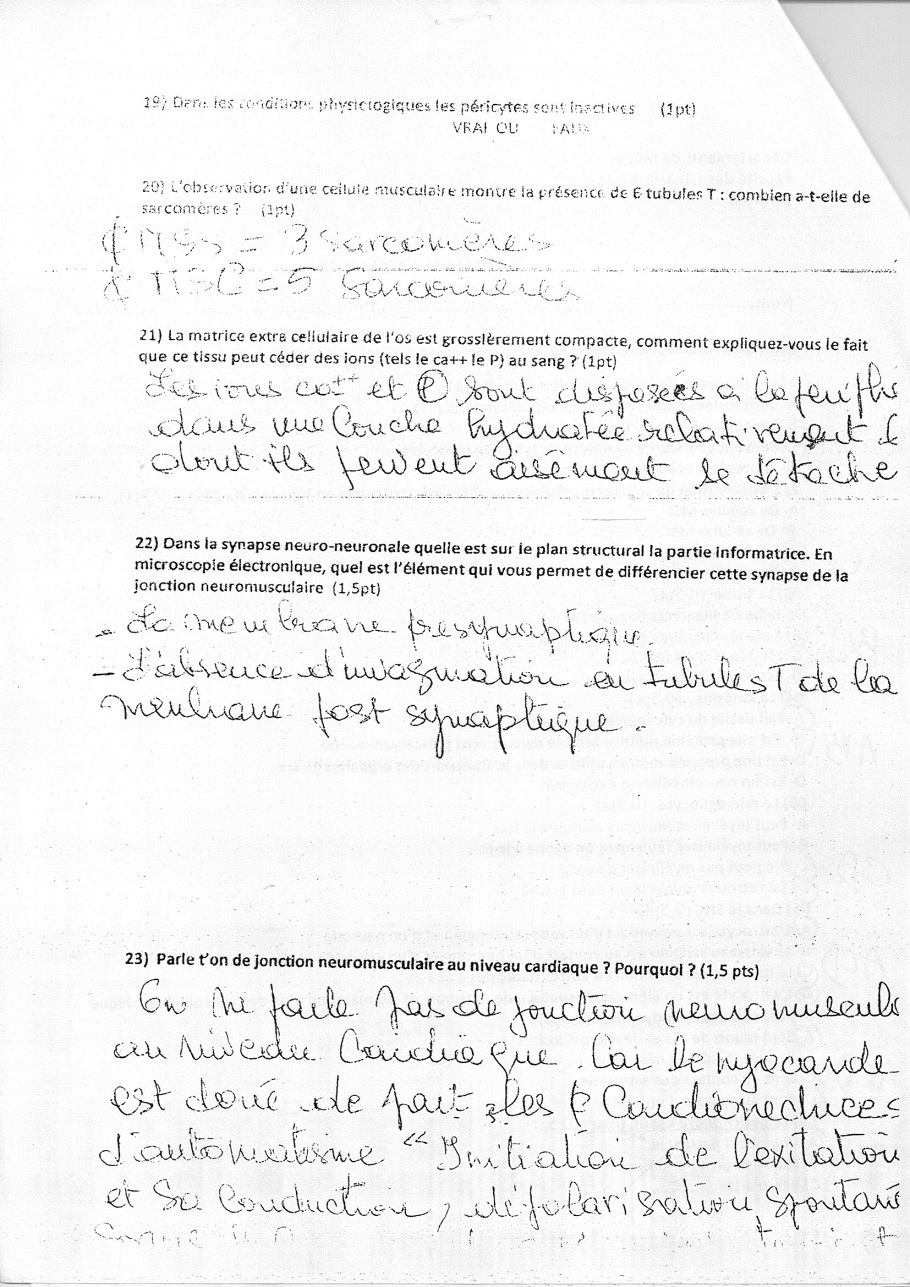 19) Dans les conditions physiologiques les péricytes sont inactives (1pt)
VRAI OU FAUX
20) L'observation d'une cellule musculaire montre la présence de 6 tubules T : combien a-t-elle de
sarcomères ? (1pt)
¢ MSS = 3 Sarcomères
¢ MSC = 5 Sarcomères
21) La matrice extra cellulaire de l'os est grossièrement compacte, comment expliquez-vous le fait
que ce tissu peut céder des ions (tels le ca++ le P) au sang ? (1pt)
Les ions ca++ et P sont disposées à la périphé
dans une couche hydratée relativement
dont ils peuvent aisément se détache
22) Dans la synapse neuro-neuronale quelle est sur le plan structural la partie informatrice. En
microscopie électronique, quel est l'élément qui vous permet de différencier cette synapse de la
jonction neuromusculaire (1,5pt)
- La membrane presynaptique.
- L'absence d'invagination en tubules T de la
membrane post synaptique.
23) Parle t'on de jonction neuromusculaire au niveau cardiaque ? Pourquoi ? (1,5 pts)
On ne parle pas de jonction neuromuscula
au niveau Cardiaque. Car le myocarde
est doué de fait les ¢ Cardionectrices
d'automatisme "Initiation de l'exitation
et sa conduction, dépolarisation spontané